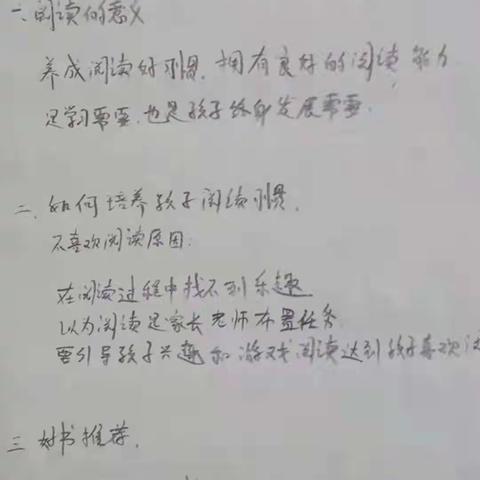 一、阅读的意义
养成阅读好习惯,拥有良好的阅读能力
是学习需要,也是孩子终身发展需要.
二、如何培养孩子阅读习惯.
不喜欢阅读原因:
在阅读过程中找不到乐趣
以为阅读是家长老师布置任务
要引导孩子兴趣和游戏阅读达到孩子喜欢
三 好书推荐.